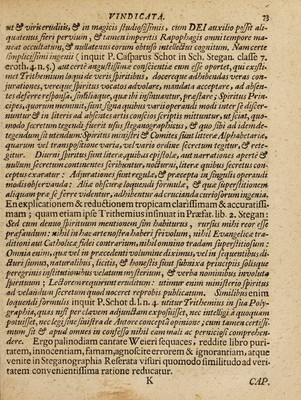 VINDICATA. 73
ut & viri eruditi, & in magicis studiosissimis, cum DEI auxilio possit ali-
quatenus fieri pervium, & tamen imperitis Rapophagis omnitempore ma-
neat occultatum, & nullatenus eorum obtuso intellectui cognitum. Nam certe
simplicissimi ingenii (inquit P. Casparus Schot in Sch. Stegan. classe 7.
eroth. 4. n. 5.) aut certe angustissimæ conscientiæ eum esse oportet, qui existi-
met Trithemium loqui de veris spiritibus, docereque adhibendas veras con-
jurationes, vereque spiritus vocatos advolare, mandata acceptare, ad absen-
tes deferre responsa, similiaque, quæ ibi insinuantur, præstare, Spiritus Prin-
cipes, quorum meminit, sunt signa quibus varii operandi modi inter se discer-
nuntur & in literis ad absentes artis conscios scriptis mittuntur, ut sciat, quo-
modo secretum tegendi fuerit usus steganographus, & quo sibi ad idem de-
tegendum sit utendum: Spiritus ministri & Comites sunt literæ Alphabetariæ,
quarum vel transpositione varia, vel vario ordine secretum tegitur, & rete-
gitur. Diurni spiritus sunt literæ, quibus epistolæ, aut narrationes apertè &
nullum secretum continentes scribuntur, nocturni, literæ quibus secretus con-
ceptus exaratur: Adjurationes sunt regulæ, & præcepta in singulis operandi
modis observanda: Aliæ obscuræ loquendi formulæ, & quæ superstitionem
aliquam præ se ferre videntur, adhibentur ad crucianda curiosorum ingenia.
En explicationem & reductionem tropicam clarissimam & accuratissi-
mam; quam etiam ipse Trithemius insinuat in Præfat. lib. 2. Stegan:
Sed cum denuo spirituum mentionem sim habiturus, rursus mihi reor esse
præfandum: nihil in hac arte nostra haberi frivolum, nihil Evangelicæ tra-
ditioni aut Catholicæ fidei contrarium, nihil omnino tradam superstitiosum:
Omnia enim, quæ vel in præcedenti volumine diximus, vel in sequentibus di-
cturi sumus, naturalibus, licitis, & honestis sunt subnixa principiis aliquæ
peregrinis institutionibus velatum mysterium, & verba nominibus involuta
spirituum; Lectorem requirunt eruditum: utimur enim ministerio spiritus
ad velandum secretum quod nec oret reprobis publicum. Similibus enim
loquendi formulis inquit P. Schot d. l. n. 4. utitur Trithemius in sua Poly-
graphia, quas nisi per clavem adjunctam exposuisset, nec intelligi à quoquam
potuisset, nec legi sine sinistra de Autore concepta opinione; cum tamen certissi-
mum sit & apud omnes in confesso nihil eam mali ac perniciosi comprehen-
dere. Ergo palinodiam cantate Wieeri sequaces, reddite libro puri-
tatem, innocentiam, famam, agnoscite errorem & ignorantiam, atque
venite in Steganographia Reserata visuri quomodo similitudo ad veri-
tatem convenientissima ratione reducatur.
K CAP.